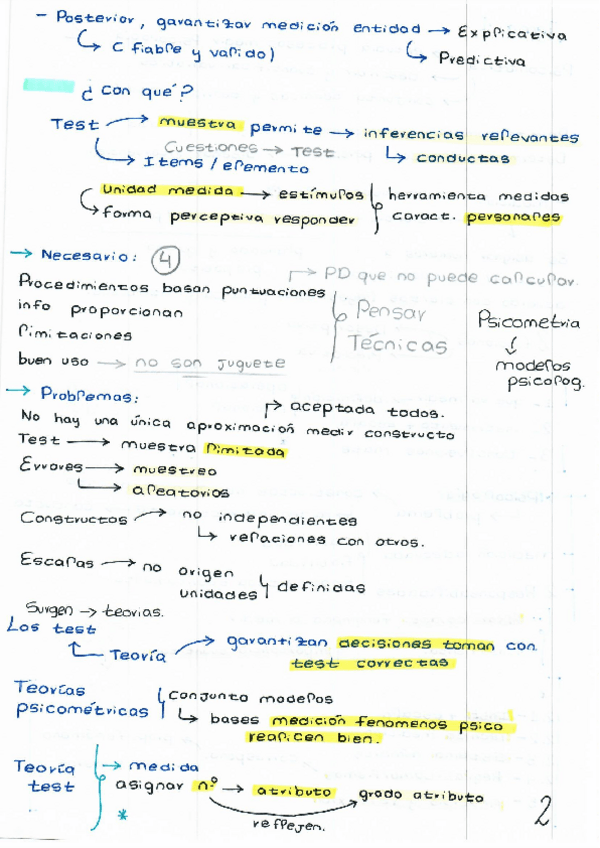 - Posterior, garantizar medición entidad → Explicativa
( fiable y valido) Predictiva
¿Con qué?
Test → muestra permite → inferencias relevantes
Cuestiones → Test → conductas
Items / elemento
Unidad medida → estímulos herramienta medidas
forma perceptiva responder caract. personales
→ Necesario: 4
PD que no puede calcular.
Procedimientos basan puntuaciones
info proporcionan Pensar
limitaciones Técnicas
buen uso → no son juguete
Psicometria
↓
modelos
psicolog.
→ Problemas:
→ aceptada todos.
No hay una única aproximación medir constructo
Test → muestra limitada
Errores → muestreo
→ aleatorios
Constructos → no independientes
→ relaciones con otros.
Escalas → no origen
unidades definidas
Surgen → teorias.
Los test
Teoría → garantizan decisiones toman con
test correctas
Teorías psicométricas conjunto modelos
→ bases medición fenomenos psico
realicen bien.
Teoría test → medida
asignar nº → atributo grado atributo
*
reflejen.
2